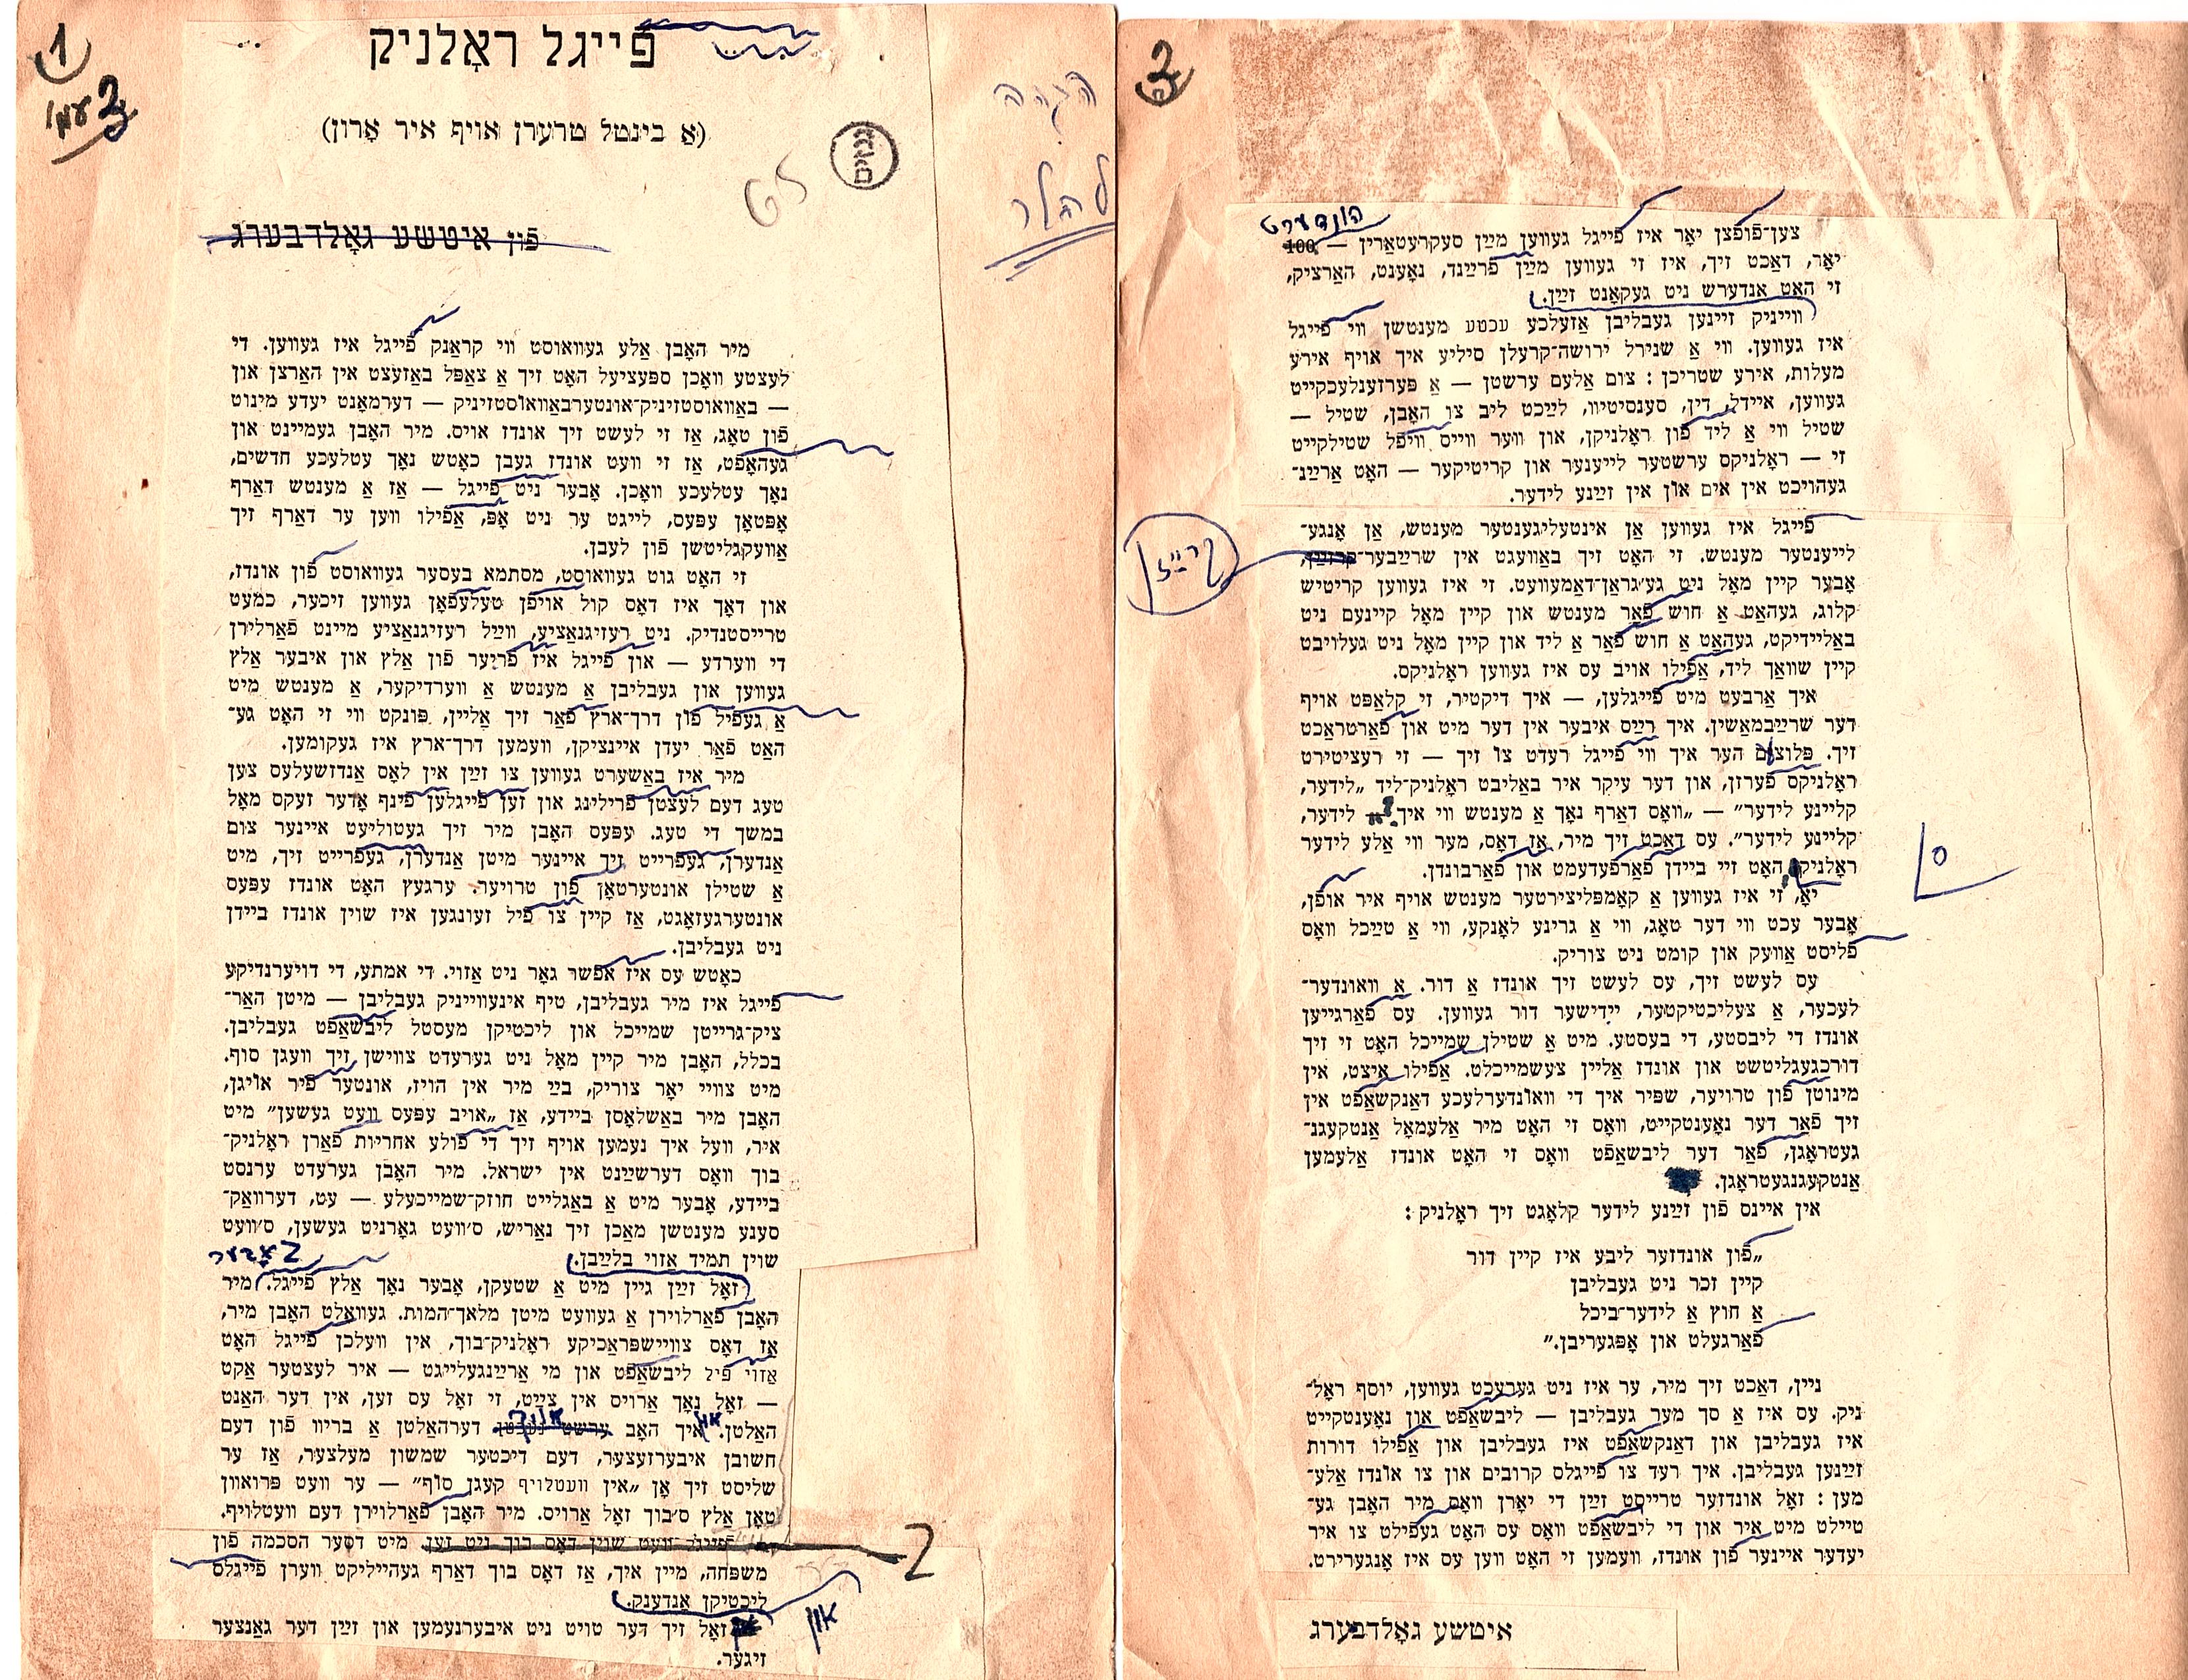 1
2
פֿייגל ראָלניק
(אַ בינטל טרערן אויף איר אָרון)
גנזים
פֿון איטשע גאָלדבערג
מיר האָבן אַלע געוואוסט ווי קראַנק פֿייגל איז געווען. די
לעצטע וואָכן ספּעציעל האָט זיך אַ צאַפּל באַזעצט אין האַרצן און
— באַוואוסטזיניק־אונטערבאַוואוסטזיניק — דערמאָנט יעדע מינוט
פֿון טאָג, אַז זי לעשט זיך אונדז אויס. מיר האָבן געמיינט און
געהאָפֿט, אַז זי וועט אונדז געבן כאָטש נאָך עטלעכע חדשים,
נאָך עטלעכע וואָכן. אָבער ניט פֿייגל — אַז אַ מענטש דאַרף
אָפּטאָן עפּעס, לייגט ער ניט אָפּ, אַפֿילו ווען ער דאַרף זיך
אַוועקגליטשן פֿון לעבן.
זי האָט גוט געוואוסט, מסתּמא בעסער געוואוסט פֿון אונדז,
און דאָך איז דאָס קול אויפֿן טעלעפֿאָן געווען זיכער, כּמעט
טרייסטנדיק. ניט רעזיגנאַציע, ווייַל רעזיגנאַציע מיינט פֿאַרלירן
די ווערדע — און פֿייגל איז פֿריִער פֿון אַלץ און איבער אַלץ
געווען און געבליבן אַ מענטש אַ ווערדיקער, אַ מענטש מיט
אַ געפֿיל פֿון דרך־ארץ פֿאַר זיך אַליין, פּונקט ווי זי האָט גע־
האַט פֿאַר יעדן איינציקן, וועמען דרך־ארץ איז געקומען.
מיר איז באַשערט געווען צו זייַן אין לאָס אַנדזשעלעס צען
טעג דעם לעצטן פֿרילינג און זען פֿייגלען פֿינף אָדער זעקס מאָל
במשך די טעג. עפּעס האָבן מיר זיך געטוליעט איינער צום
אַנדערן, געפֿרייט זיך איינער מיטן אַנדערן, געפֿרייט זיך, מיט
אַ שטילן אונטערטאָן פֿון טרויער. ערגעץ האָט אונדז עפּעס
אונטערגעזאָגט, אַז קיין צו פֿיל זעונגען איז שוין אונדז ביידן
ניט געבליבן.
כאָטש עס איז אפֿשר גאָר ניט אַזוי. די אמתע, די דויערנדיקע
פֿייגל איז מיר געבליבן, טיף אינעווייניק געבליבן — מיטן האַר־
ציק־גרייטן שמייכל און ליכטיקן מעסטל ליבשאַפֿט געבליבן.
בכלל, האָבן מיר קיין מאָל ניט גערעדט צווישן זיך וועגן סוף.
מיט צוויי יאָר צוריק, בייַ מיר אין הויז, אונטער פֿיר אויגן,
האָבן מיר באַשלאָסן ביידע, אַז „אויב עפּעס וועט געשען” מיט
איר, וועל איך נעמען אויף זיך די פֿולע אחריות פֿאַרן ראָלניק־
בוך וואָס דערשייַנט אין ישראל. מיר האָבן גערעדט ערנסט
ביידע, אָבער מיט אַ באַגלייט חוזק־שמייכעלע — עט, דערוואַק־
סענע מענטשן מאַכן זיך נאַריש, ס׳וועט גאָרניט געשען, ס׳וועט
שוין תּמיד אַזוי בלייַבן.
אָבער
זאָל זייַן גיין מיט אַ שטעקן, אָבער נאָך אַלץ פֿייגל. מיר
האָבן פֿאַרלוירן אַ געוועט מיטן מלאך־המות. געוואָלט האָבן מיר,
אַז דאָס צוויישפּראַכיקע ראָלניק־בוך, אין וועלכן פֿייגל האָט
אַזוי פֿיל ליבשאַפֿט און מי אַרייַנגעלייגט — איר לעצטער אַקט
— זאָל נאָך אַרויס אין צייַט, זי זאָל עס זען, אין דער האַנט
האַלטן. איך האָב ערשט נעכטן דערהאַלטן אַ בריוו פֿון דעם
חשובן איבערזעצער, דעם דיכטער שמשון מעלצער, אַז ער
שליסט זיך אָן „אין וועטלויף קעגן סוף” — ער וועט פּרואוון
טאָן אַלץ ס׳בוך זאָל אַרויס. מיר האָבן פֿאַרלוירן דעם וועטלויף.
פֿייגל וועט שוין דאָס בוך ניט זען. מיט דער הסכּמה פֿון
משפּחה, מיין איך, אַז דאָס בוך דאַרף געהייליקט ווערן פֿייגלס
ליכטיקן אָנדענק.
און
זאָל זיך דער טויט ניט איבערנעמען און זייַן דער גאַנצער
זיגער.
2
הונדערט
צען־פֿופֿצן יאָר איז פֿייגל געווען מייַן סעקרעטאַרין — 100
יאָר, דאַכט זיך, איז זי געווען מייַן פֿרייַנד, נאָענט, האַרציק,
זי האָט אַנדערש ניט געקאָנט זייַן.
ווייניק זיינען געבליבן אַזעלכע עכטע מענטשן ווי פֿייגל
איז געווען. ווי אַ שנירל ירושה־קרעלן סיליע איך אויף אירע
מעלות, אירע שטריכן: צום אַלעם ערשטן — אַ פּערזענלעכקייט
געווען, איידל, דין, סענסיטיוו, לייַכט ליב צו האָבן, שטיל —
שטיל ווי אַ ליד פֿון ראָלניקן, און ווער ווייס וויפֿל שטילקייט
זי — ראָלניקס ערשטער לייענער און קריטיקער — האָט אַרייַנ־
געהויכט אין אים און אין זייַנע לידער.
פֿייגל איז געווען אַן אינטעליגענטער מענטש, אַן אָנגע־
לייענטער מענטש. זי האָט זיך באַוועגט אין שרייַבער־קרייזן,
קרייַזן
אָבער קיין מאָל ניט גע׳גראַן־דאַמעוועט. זי איז געווען קריטיש
קלוג, געהאַט אַ חוש פֿאַר מענטש און קיין מאָל קיינעם ניט
באַליידיקט, געהאַט אַ חוש פֿאַר אַ ליד און קיין מאָל ניט געלויבט
קיין שוואַך ליד, אַפֿילו אויב עס איז געווען ראָלניקס.
איך אַרבעט מיט פֿייגלען, — איך דיקטיר, זי קלאַפּט אויף
דער שרייַבמאַשין. איך רייַס איבער אין דער מיט און פֿאַרטראַכט
זיך. פּלוצעם הער איך ווי פֿייגל רעדט צו זיך — זי רעציטירט
ראָלניקס פֿערזן, און דער עיקר איר באַליבט ראָלניק־ליד „לידער,
קליינע לידער” — „וואָס דאַרף נאָך אַ מענטש ווי איך? לידער,
קליינע לידער”. עס דאַכט זיך מיר, אַז דאָס, מער ווי אַלע לידער
ראָלניקס, האָט זיי ביידן פֿאַרפֿעדעמט און פֿאַרבונדן.
יאָ, זי איז געווען אַ קאָמפּליצירטער מענטש אויף איר אופֿן,
אָבער עכט ווי דער טאָג, ווי אַ גרינע לאָנקע, ווי אַ טייַכל וואָס
פֿליסט אַוועק און קומט ניט צוריק.
עס לעשט זיך, עס לעשט זיך אונדז אַ דור. אַ וואונדער־
לעכער, אַ צעליכטיקטער, ייִדישער דור געווען. עס פֿאַרגייען
אונדז די ליבסטע, די בעסטע. מיט אַ שטילן שמייכל האָט זי זיך
דורכגעגליטשט און אונדז אַליין צעשמייכלט. אַפֿילו איצט, אין
מינוטן פֿון טרויער, שפּיר איך די וואונדערלעכע דאַנקשאַפֿט אין
זיך פֿאַר דער נאָענטקייט, וואָס זי האָט מיר אַלעמאָל אַנטקעגנ־
געטראָגן, פֿאַר דער ליבשאַפֿט וואָס זי האָט אונדז אַלעמען
אַנטקעגנגעטראָגן.
אין איינס פֿון זייַנע לידער קלאָגט זיך ראָלניק:
„פֿון אונדזער ליבע איז קיין דור
קיין זכר ניט געבליבן
אַ חוץ אַ לידער־ביכל
פֿאַרגעלט און אָפּגעריבן.”
ניין, דאַכט זיך מיר, ער איז ניט גערעכט געווען, יוסף ראָל־
ניק. עס איז אַ סך מער געבליבן — ליבשאַפֿט און נאָענטקייט
איז געבליבן און דאַנקשאַפֿט איז געבליבן און אַפֿילו דורות
זייַנען געבליבן. איך רעד צו פֿייגלס קרובים און צו אונדז אַלע־
מען: זאָל אונדזער טרייסט זייַן די יאָרן וואָס מיר האָבן גע־
טיילט מיט איר און די ליבשאַפֿט וואָס עס האָט געפֿילט צו איר
יעדער איינער פֿון אונדז, וועמען זי האָט ווען עס איז אָנגערירט.
איטשע גאָלדבערג